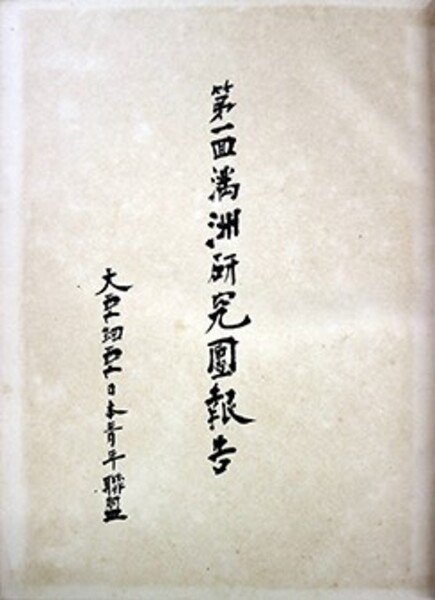 第一回満洲研究團報告
大亜細亜日本青年聯盟